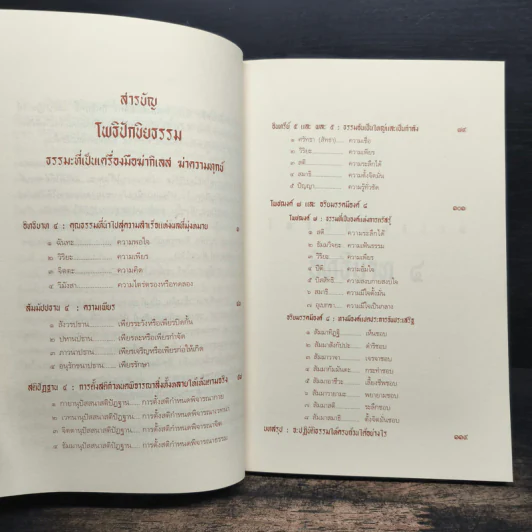 สารบัญ
โพธิปักขิยธรรม
ธรรมะที่เป็นเครื่องมือฆ่ากิเลส ฆ่าความทุกข์
อิทธิบาท ๔ : คุณธรรมที่นำไปสู่ความสำเร็จแห่งผลที่มุ่งหมาย ๑
๑ ฉันทะ ความพอใจ
๒ วิริยะ ความเพียร
๓ จิตตะ ความคิด
๔ วิมังสา ความไตร่ตรองหรือทดลอง
สัมมัปปธาน ๔ : ความเพียร
๑ สังวรปธาน เพียรระวังหรือเพียรปิดกั้น
๒ ปหานปธาน เพียรละหรือเพียรกำจัด
๓ ภาวนาปธาน เพียรเจริญหรือเพียรก่อให้เกิด
๔ อนุรักขนาปธาน เพียรรักษา
สติปัฏฐาน ๔ : การตั้งสติกำหนดพิจารณาสิ่งทั้งหลายให้เห็นตามจริง
๑ กายานุปัสสนาสติปัฏฐาน การตั้งสติกำหนดพิจารณากาย
๒ เวทนานุปัสสนาสติปัฏฐาน การตั้งสติกำหนดพิจารณาเวทนา
๓ จิตตานุปัสสนาสติปัฏฐาน การตั้งสติกำหนดพิจารณาจิต
๔ ธัมมานุปัสสนาสติปัฏฐาน การตั้งสติกำหนดพิจารณาธรรม
อินทรีย์ ๕ และ พละ ๕ : ธรรมอันเป็นใหญ่และเป็นกำลัง
๑ ศรัทธา (สัทธา) ความเชื่อ
๒ วิริยะ ความเพียร
๓ สติ ความระลึกได้
๔ สมาธิ ความตั้งจิตมั่น
๕ ปัญญา ความรู้ทั่วชัด
โพชฌงค์ ๗ และ อริยมรรคมีองค์ ๘ ๑๐๑
โพชฌงค์ ๗ : ธรรมที่เป็นองค์แห่งการตรัสรู้
๑ สติ ความระลึกได้
๒ ธัมมวิจยะ ความเฟ้นธรรม
๓ วิริยะ ความเพียร
๔ ปีติ ความอิ่มใจ
๕ ปัสสัทธิ ความสงบกายสงบใจ
๖ สมาธิ ความมีใจตั้งมั่น
๗ อุเบกขา ความมีใจเป็นกลาง
อริยมรรคมีองค์ ๘ : ทางมีองค์แปดประการอันประเสริฐ
๑ สัมมาทิฏฐิ เห็นชอบ
๒ สัมมาสังกัปปะ ดำริชอบ
๓ สัมมาวาจา เจรจาชอบ
๔ สัมมากัมมันตะ กระทำชอบ
๕ สัมมาอาชีวะ เลี้ยงชีพชอบ
๖ สัมมาวายามะ พยายามชอบ
๗ สัมมาสติ ระลึกชอบ
๘ สัมมาสมาธิ ตั้งจิตมั่นชอบ
บทสรุป : จะปฏิบัติธรรมให้ครบถ้วนได้อย่างไร